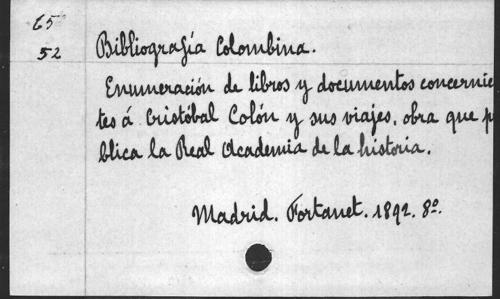 65
52
Bibliografía Colombina.
Enumeración de libros y documentos concernie
tes á Cristóbal Colón y sus viajes, obra que p
blica la Real Academia de la historia.
Madrid. Fortanet. 1892. 8º.